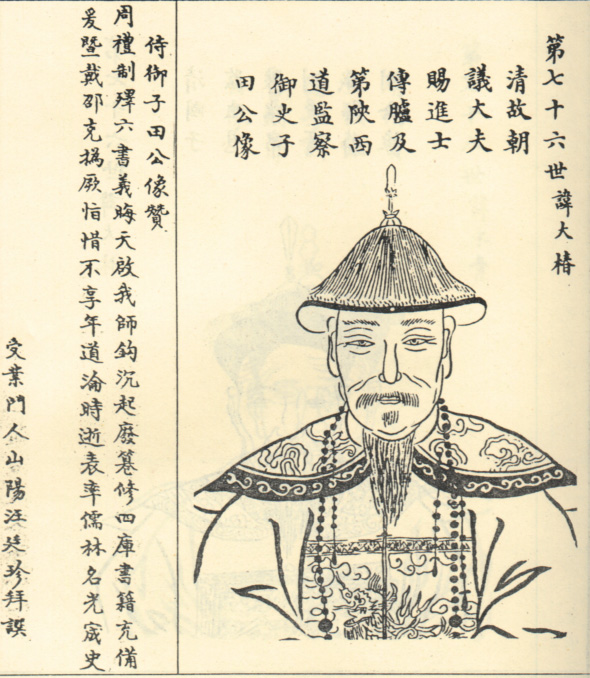 第七十六世諱大椿
清故朝
議大夫
賜進士
傳臚及
第陝西
道監察
御史子
田公像
侍御子田公像贊
周禮制釋六書義晦天啟我師鈎沉起廢篹修四庫書籍充備
爰暨戴邵克撝厥恉惜不享年道淪時逝表率儒林名光宬史
受業門人山陽汪廷珍拜譔